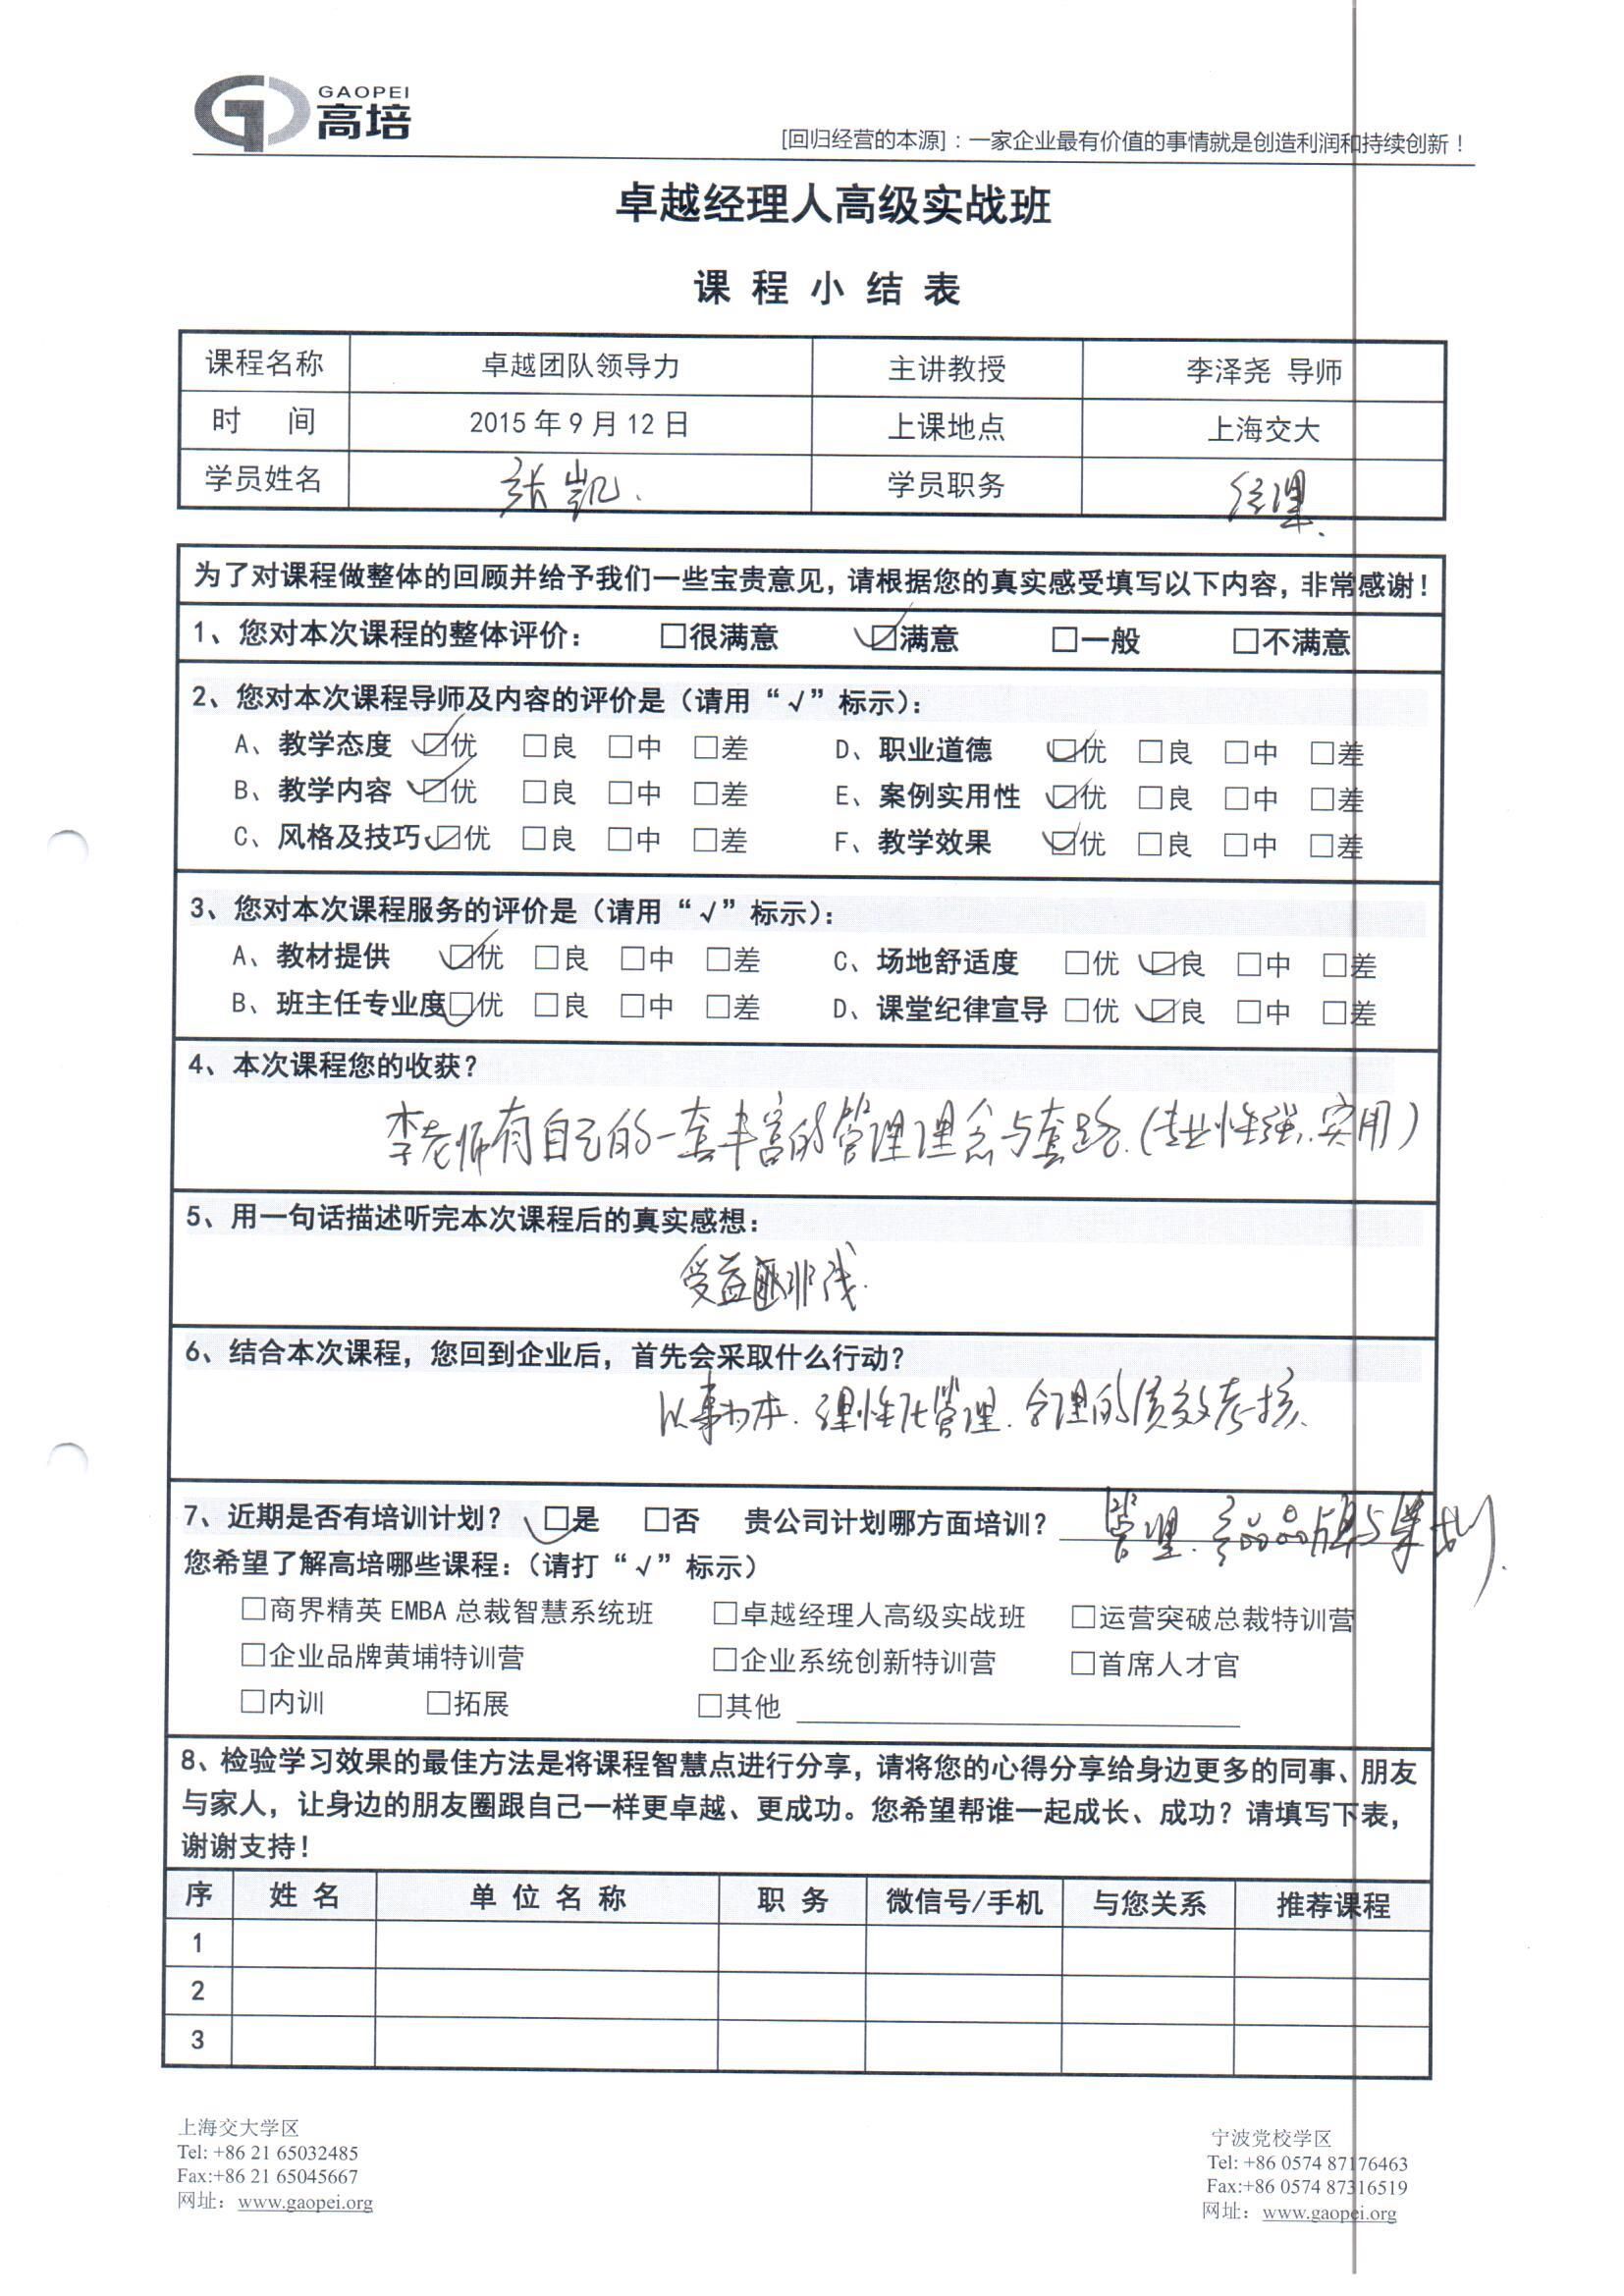 GAOPEI
高培
[回归经营的本源]：一家企业最有价值的事情就是创造利润和持续创新！
卓越经理人高级实战班
课 程 小 结 表
课程名称 卓越团队领导力 主讲教授 李泽尧 导师
时 间 2015年9月12日 上课地点 上海交大
学员姓名 张凯. 学员职务 经理.
为了对课程做整体的回顾并给予我们一些宝贵意见，请根据您的真实感受填写以下内容，非常感谢！
1、您对本次课程的整体评价： □很满意 ☑满意 □一般 □不满意
2、您对本次课程导师及内容的评价是（请用“√”标示）：
A、教学态度 ☑优 □良 □中 □差 D、职业道德 ☑优 □良 □中 □差
B、教学内容 ☑优 □良 □中 □差 E、案例实用性 ☑优 □良 □中 □差
C、风格及技巧 ☑优 □良 □中 □差 F、教学效果 ☑优 □良 □中 □差
3、您对本次课程服务的评价是（请用“√”标示）：
A、教材提供 ☑优 □良 □中 □差 C、场地舒适度 □优 ☑良 □中 □差
B、班主任专业度 ☑优 □良 □中 □差 D、课堂纪律宣导 □优 ☑良 □中 □差
4、本次课程您的收获？
李老师有自己的一套丰富的管理理念与套路.(专业性强.实用)
5、用一句话描述听完本次课程后的真实感想：
受益匪非浅.
6、结合本次课程，您回到企业后，首先会采取什么行动？
以事为本.理性化管理.合理的绩效考核.
7、近期是否有培训计划？ ☑是 □否 贵公司计划哪方面培训？ 管理. 品牌与策划.
您希望了解高培哪些课程：（请打“√”标示）
□商界精英EMBA总裁智慧系统班 □卓越经理人高级实战班 □运营突破总裁特训营
□企业品牌黄埔特训营 □企业系统创新特训营 □首席人才官
□内训 □拓展 □其他
8、检验学习效果的最佳方法是将课程智慧点进行分享，请将您的心得分享给身边更多的同事、朋友
与家人，让身边的朋友圈跟自己一样更卓越、更成功。您希望帮谁一起成长、成功？请填写下表，
谢谢支持！
序 姓 名 单 位 名 称 职 务 微信号/手机 与您关系 推荐课程
1
2
3
上海交大学区
Tel: +86 21 65032485
Fax:+86 21 65045667
网址：www.gaopei.org
宁波党校学区
Tel: +86 0574 87176463
Fax:+86 0574 87316519
网址：www.gaopei.org